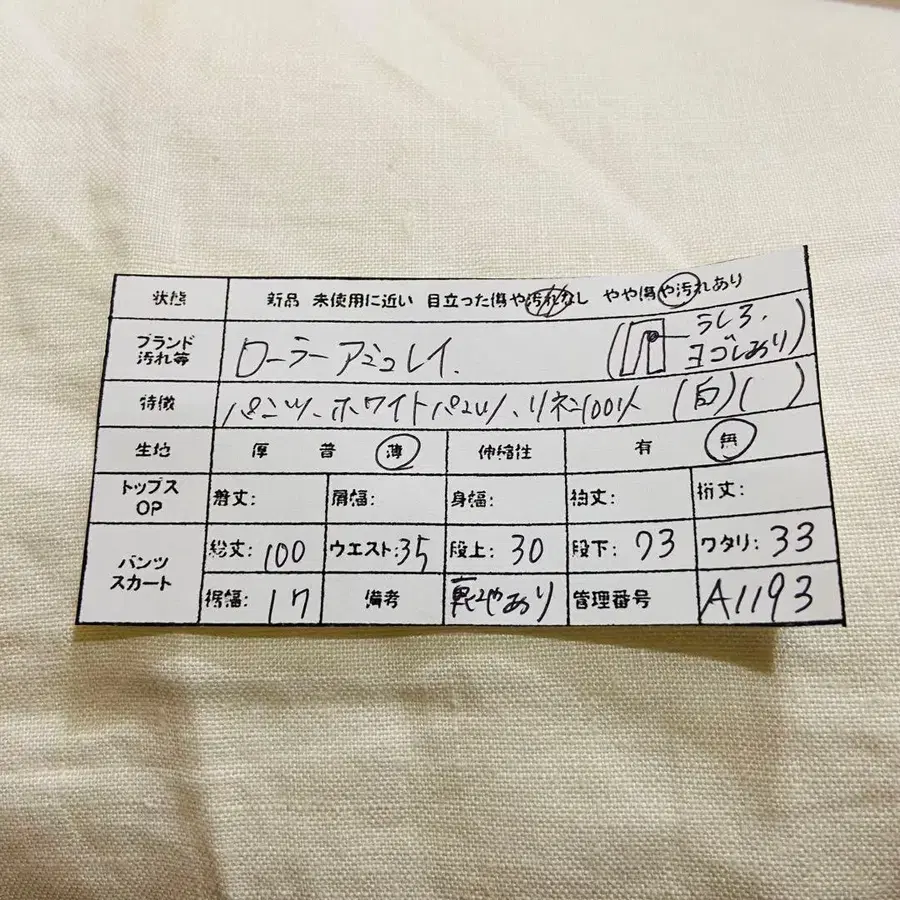 状態 新品 未使用に近い 目立った傷や汚れなし やや傷や汚れあり
ブランド 汚れ等 ローラーアミュレイ. (うしろ、
ヨゴレあり)
特徴 パンツ、ホワイトパンツ、リネン100% (白)( )
生地 厚 普 薄 伸縮性 有 無
トップス OP 着丈: 肩幅: 身幅: 袖丈: 裄丈:
パンツ スカート 総丈: 100 ウエスト: 35 股上: 30 股下: 73 ワタリ: 33
裾幅: 17 備考 あり 管理番号 A1193